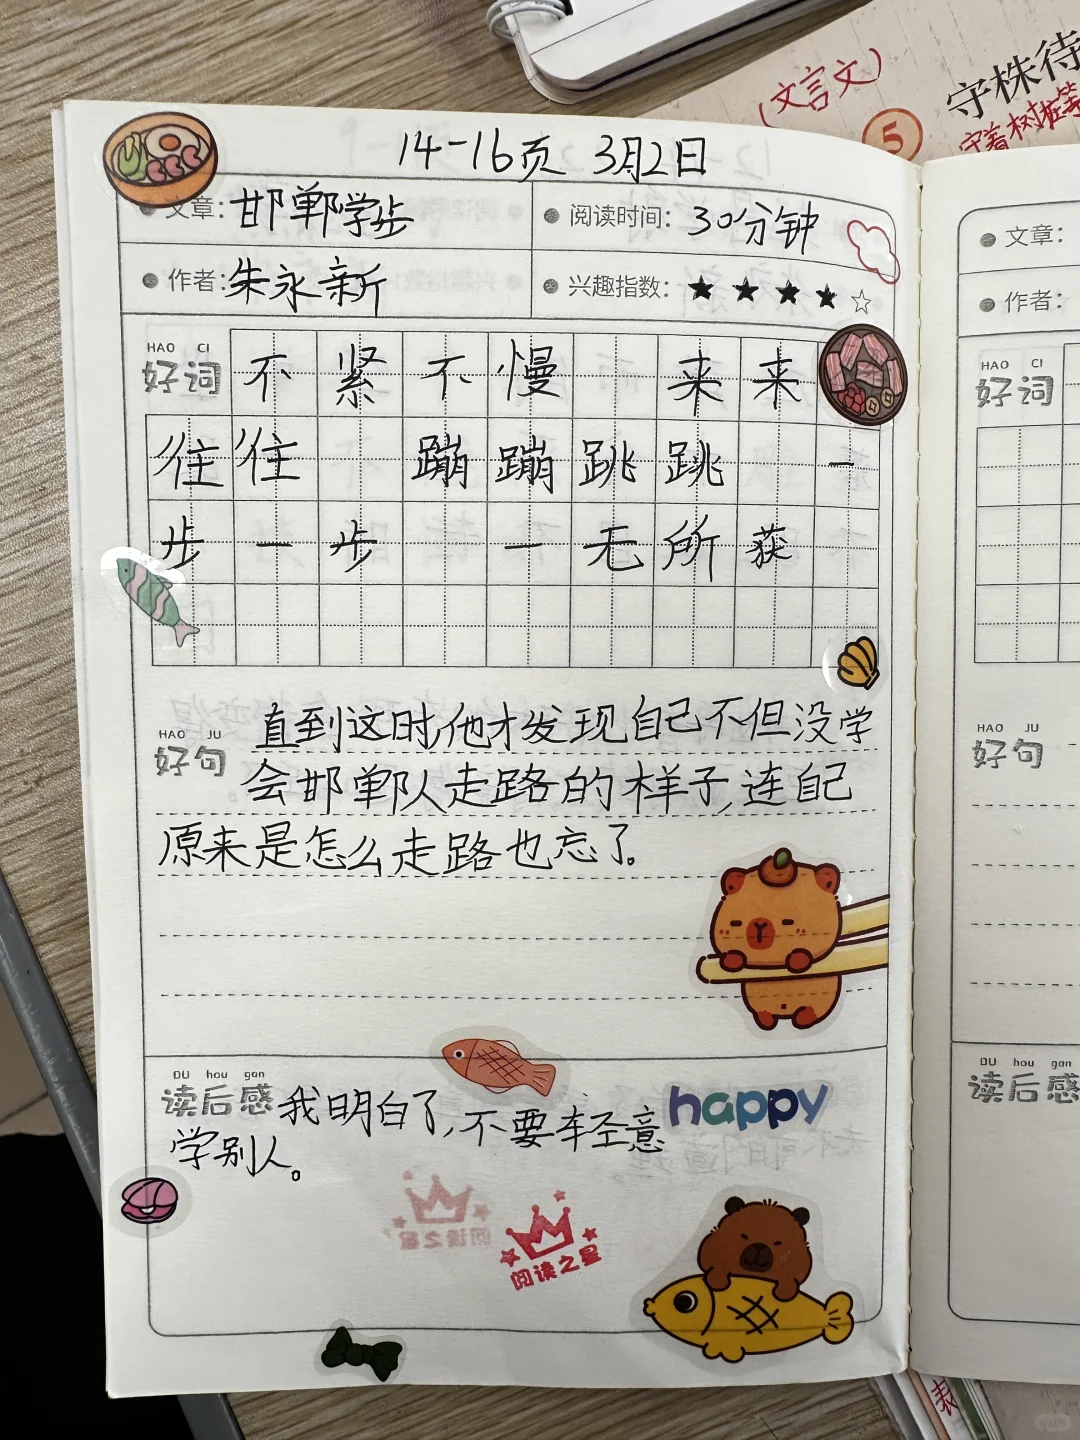 (文言文)
5
守株待
守着树桩等
14-16页 3月2日
文章: 邯郸学步
阅读时间: 30分钟
作者: 朱永新
兴趣指数: ★★★★☆
HAO CI
好词 不紧不慢 来来
往往 蹦蹦跳跳 一
步一步 一无所获
直到这时,他才发现自己不但没学
HAO JU
好句
会邯郸人走路的样子,连自己
原来是怎么走路也忘了。
DU hou gan
读后感 我明白了,不要轻意
happy
学别人。
阅读之星
阅读之星
文章:
作者:
HAO CI
好词
HAO JU
好句
DU hou gan
读后感
表